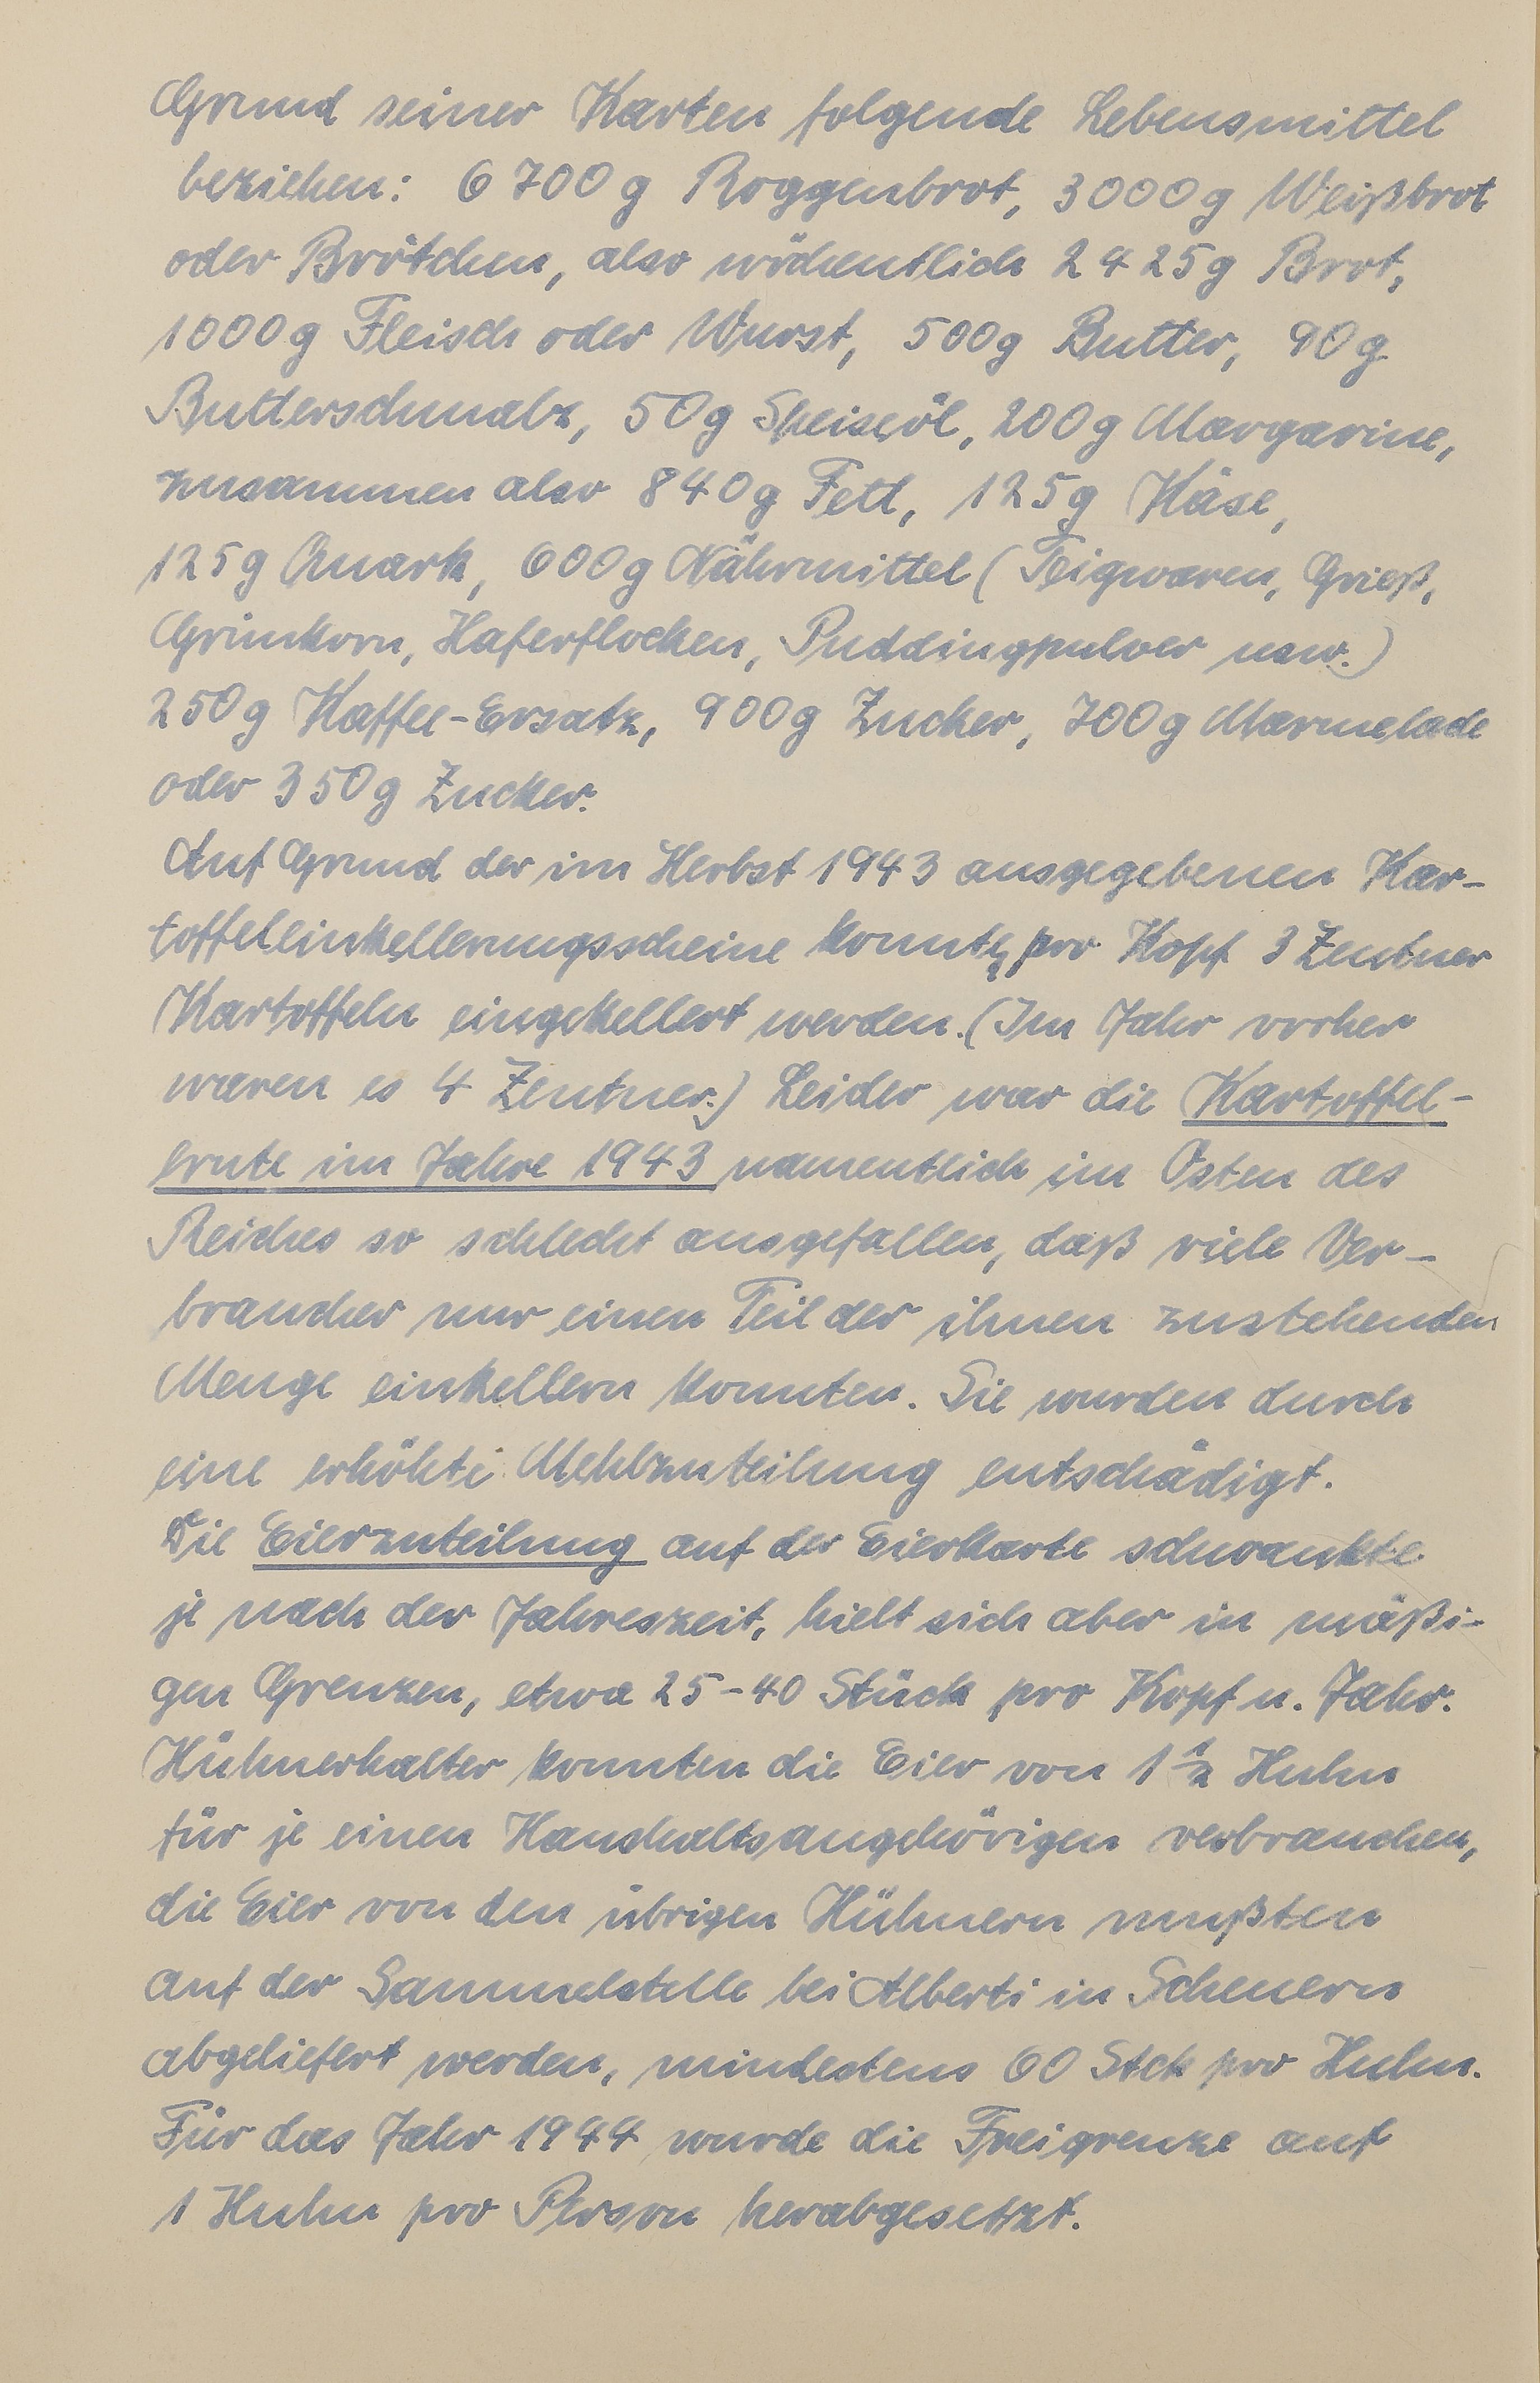 Grund seiner Karten folgende Lebensmittel
beziehen: 6700 g Roggenbrot, 3000 g Weißbrot
oder Brötchen, also wöchentlich 2425 g Brot,
1000 g Fleisch oder Wurst, 500 g Butter, 90 g
Butterschmalz, 50 g Speiseöl, 200 g Margarine,
zusammen also 840 g Fett, 125 g Käse,
125 g Quark, 600 g Nährmittel (Teigwaren, Grieß,
Grünkorn, Haferflocken, Puddingpulver usw.)
250 g Kaffee-Ersatz, 900 g Zucker, 700 g Marmelade
oder 350 g Zucker.
Auf Grund der im Herbst 1943 ausgegebenen Kar-
toffeleinkellerungsscheine konnten pro Kopf 3 Zentner
Kartoffeln eingekellert werden. (Im Jahr vorher
waren es 4 Zentner.) Leider war die Kartoffel-
ernte im Jahre 1943 namentlich im Osten des
Reiches so schlecht ausgefallen, daß viele Ver-
braucher nur einen Teil der ihnen zustehenden
Menge einkellern konnten. Sie wurden durch
eine erhöhte Mehlzuteilung entschädigt.
Die Eierzuteilung auf der Eierkarte schwankte
je nach der Jahreszeit, hielt sich aber in mäßi-
gen Grenzen, etwa 25-40 Stück pro Kopf u. Jahr.
Hühnerhalter konnten die Eier von 1 1/2 Huhn
für je einen Haushaltsangehörigen verbrauchen,
die Eier von den übrigen Hühnern mußten
auf der Sammelstelle bei Alberti in Scheuern
abgeliefert werden, mindestens 60 Stck pro Huhn.
Für das Jahr 1944 wurde die Freigrenze auf
1 Huhn pro Person herabgesetzt.